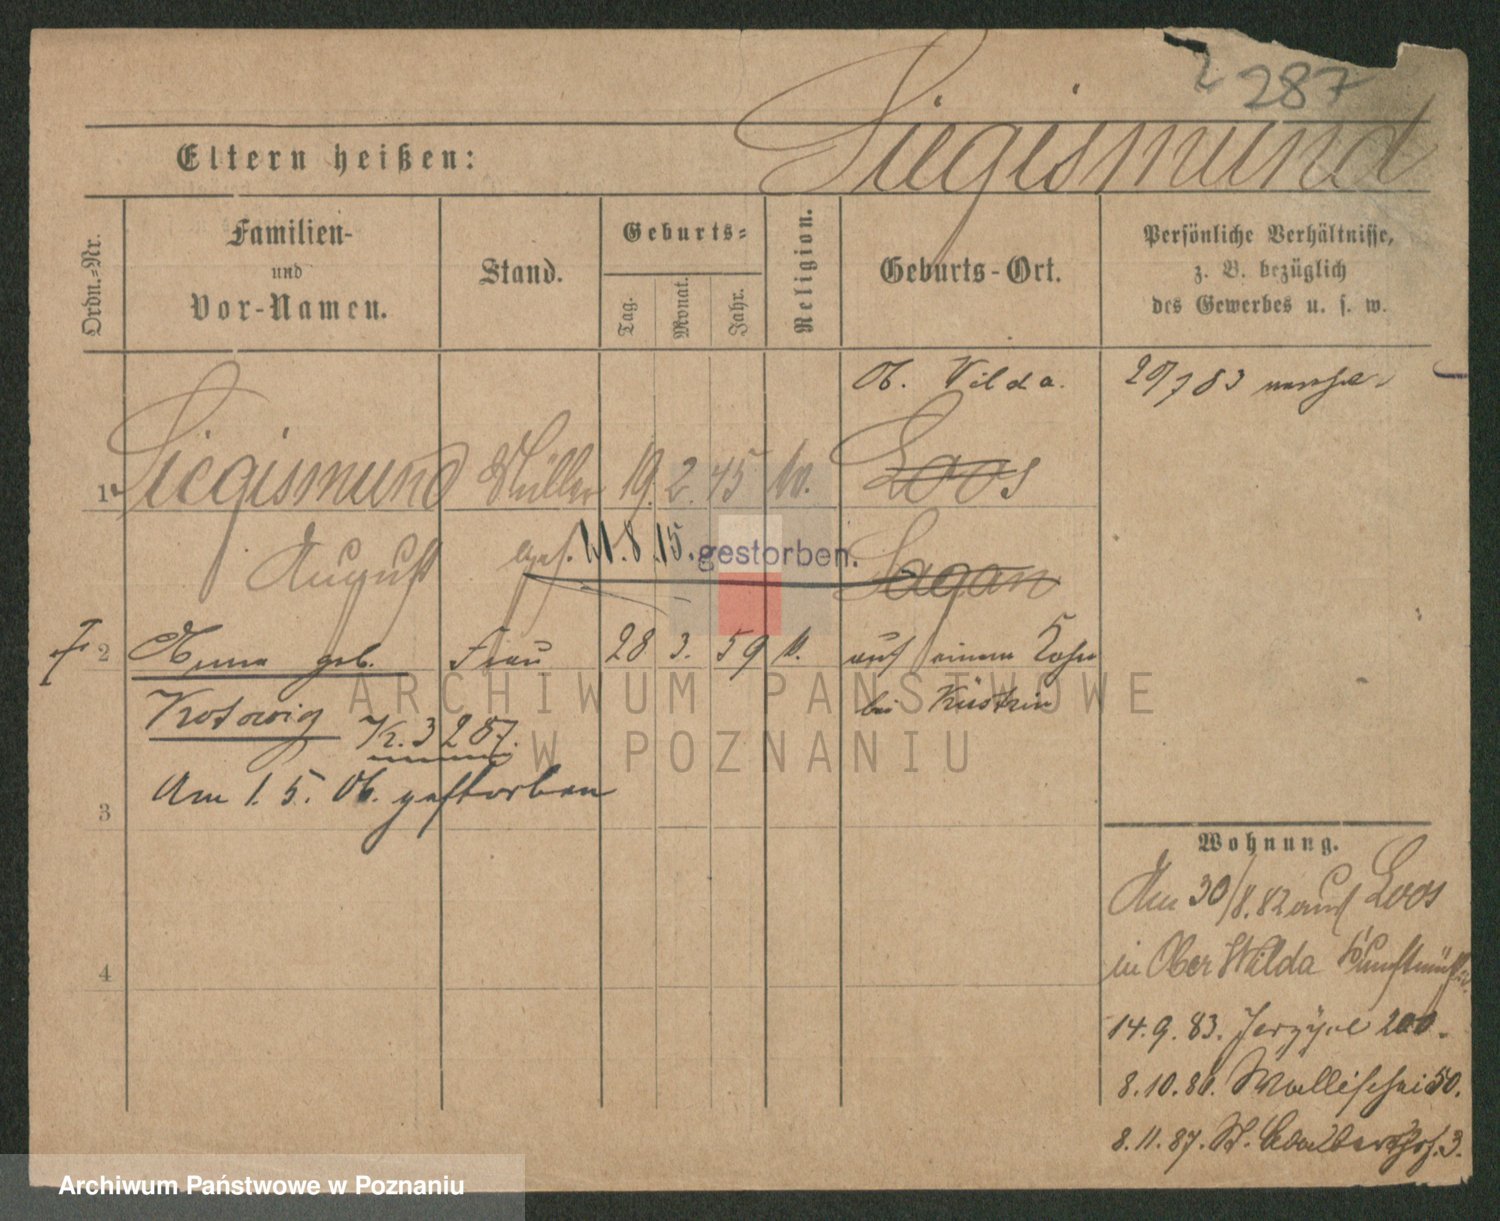 287
Siegismund
Eltern heißen:
Ordn.-Nr.
Familien-
und
Vor-Namen.
Stand.
Geburts-
Tag.
Monat.
Jahr.
Religion.
Geburts-Ort.
Persönliche Verhältnisse,
z. B. bezüglich
des Gewerbes u. s. w.
O. Vilda.
83
1 Siegismund Müller 19. 2. 45 Loos
August 8. 15. gestorben. Sagan
2 geb. Frau 28 3. 59 auf einem Kahn
Kotowig bei Küstrin
287.
Am 1. 5. 06. gestorben
3
4
Wohnung.
Am 30/8. 82 aus Loos
in Ober Wilda
14. 9. 83. Jerzyce 200.
8. 10. 86. Wallischei 50.
8. 11. 87. St. Adalbertstr. 3.
ARCHIWUM PAŃSTWOWE
W POZNANIU
Archiwum Państwowe w Poznaniu